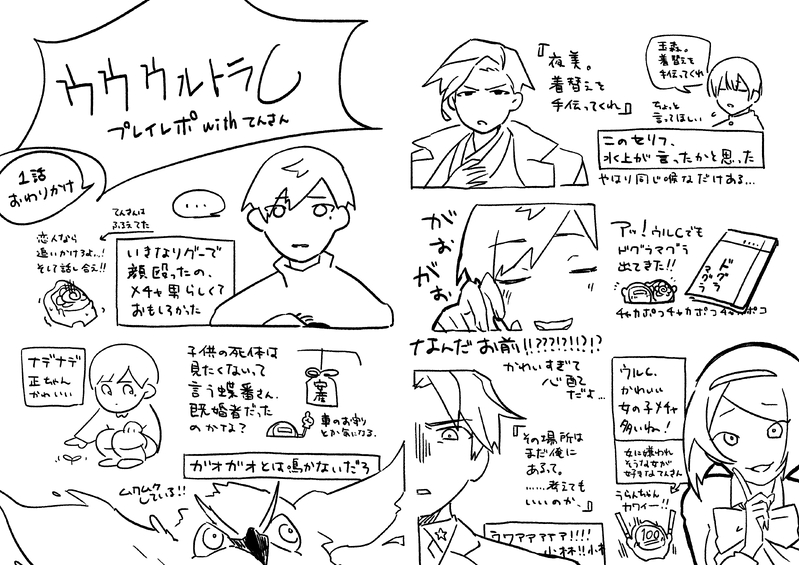 ウウウルトラC
プレイレポ with てんさん
1話
おわりかけ
…
てんさんは
ふるえてた
恋人なら
追いかけろよ…!
そして話し合え!!
いきなりグーで
顔殴ったの、
メチャ男らしくて
おもしろかった
ナデナデ
正ちゃん
かわいい
子供の死体は
見たくないって
言う蝶番さん、
既婚者だった
のかな?
車のお守り
とか気になる。
ガオガオとは鳴かないだろ
ムクムク
している!!
『夜美。
着替えを
手伝ってくれ』
玉森。
着替えを
手伝ってくれ
ちょっと
言ってほしい
このセリフ、
水上が言ったかと思った
やはり同じ喉なだけある…
がお
がお
アッ!ウルCでも
ドグラマグラ
出てきた!!
ドグラ
マグラ
チャカポコチャカポコチャカポコ
なんだお前!!???!?!!?!?
かわいすぎて
心配
だよ…
『その場所は
まだ俺に
あるって。
……考えても
いいのか、』
ウワアアアア!!!!
小林!!小林
ウルC、
かわいい
女の子メチャ
多いね!
女に嫌われ
そうな女が
好きなてんさん
うらんちゃん
カワイー!!
100